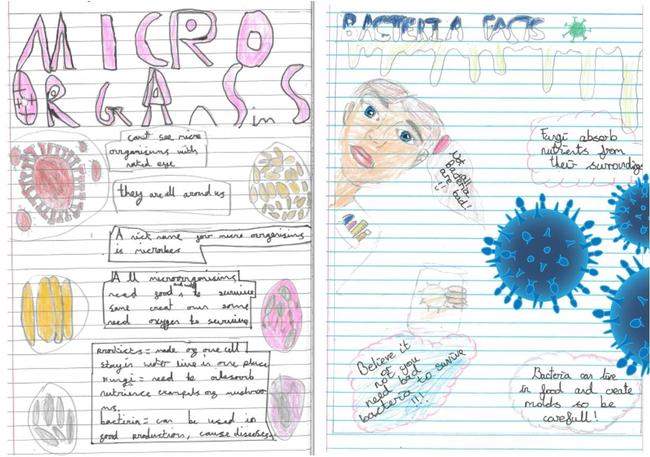 MICRO
ORGANISMS
can't see micro
organisms with
naked eye
they are all around us
A nick name for micro organisims
is microbes
All microorganisims
need food and to survive
some creat own some
need oxygen to survive
made of one cell
stay in water live in one place
fungi = need to absorb
nutrience exampls of mushroo
ms.
bacteria = can be used in
food production, cause diseases
BACTERIA FACTS
Not all
bacteria
are bad!
!!
Fungi absorb
nutrients from
their surroundings
Believe it
or not you
need bad
bacteria to survive
!!!
Bacteria can live
in food and create
molds so be
carefull!